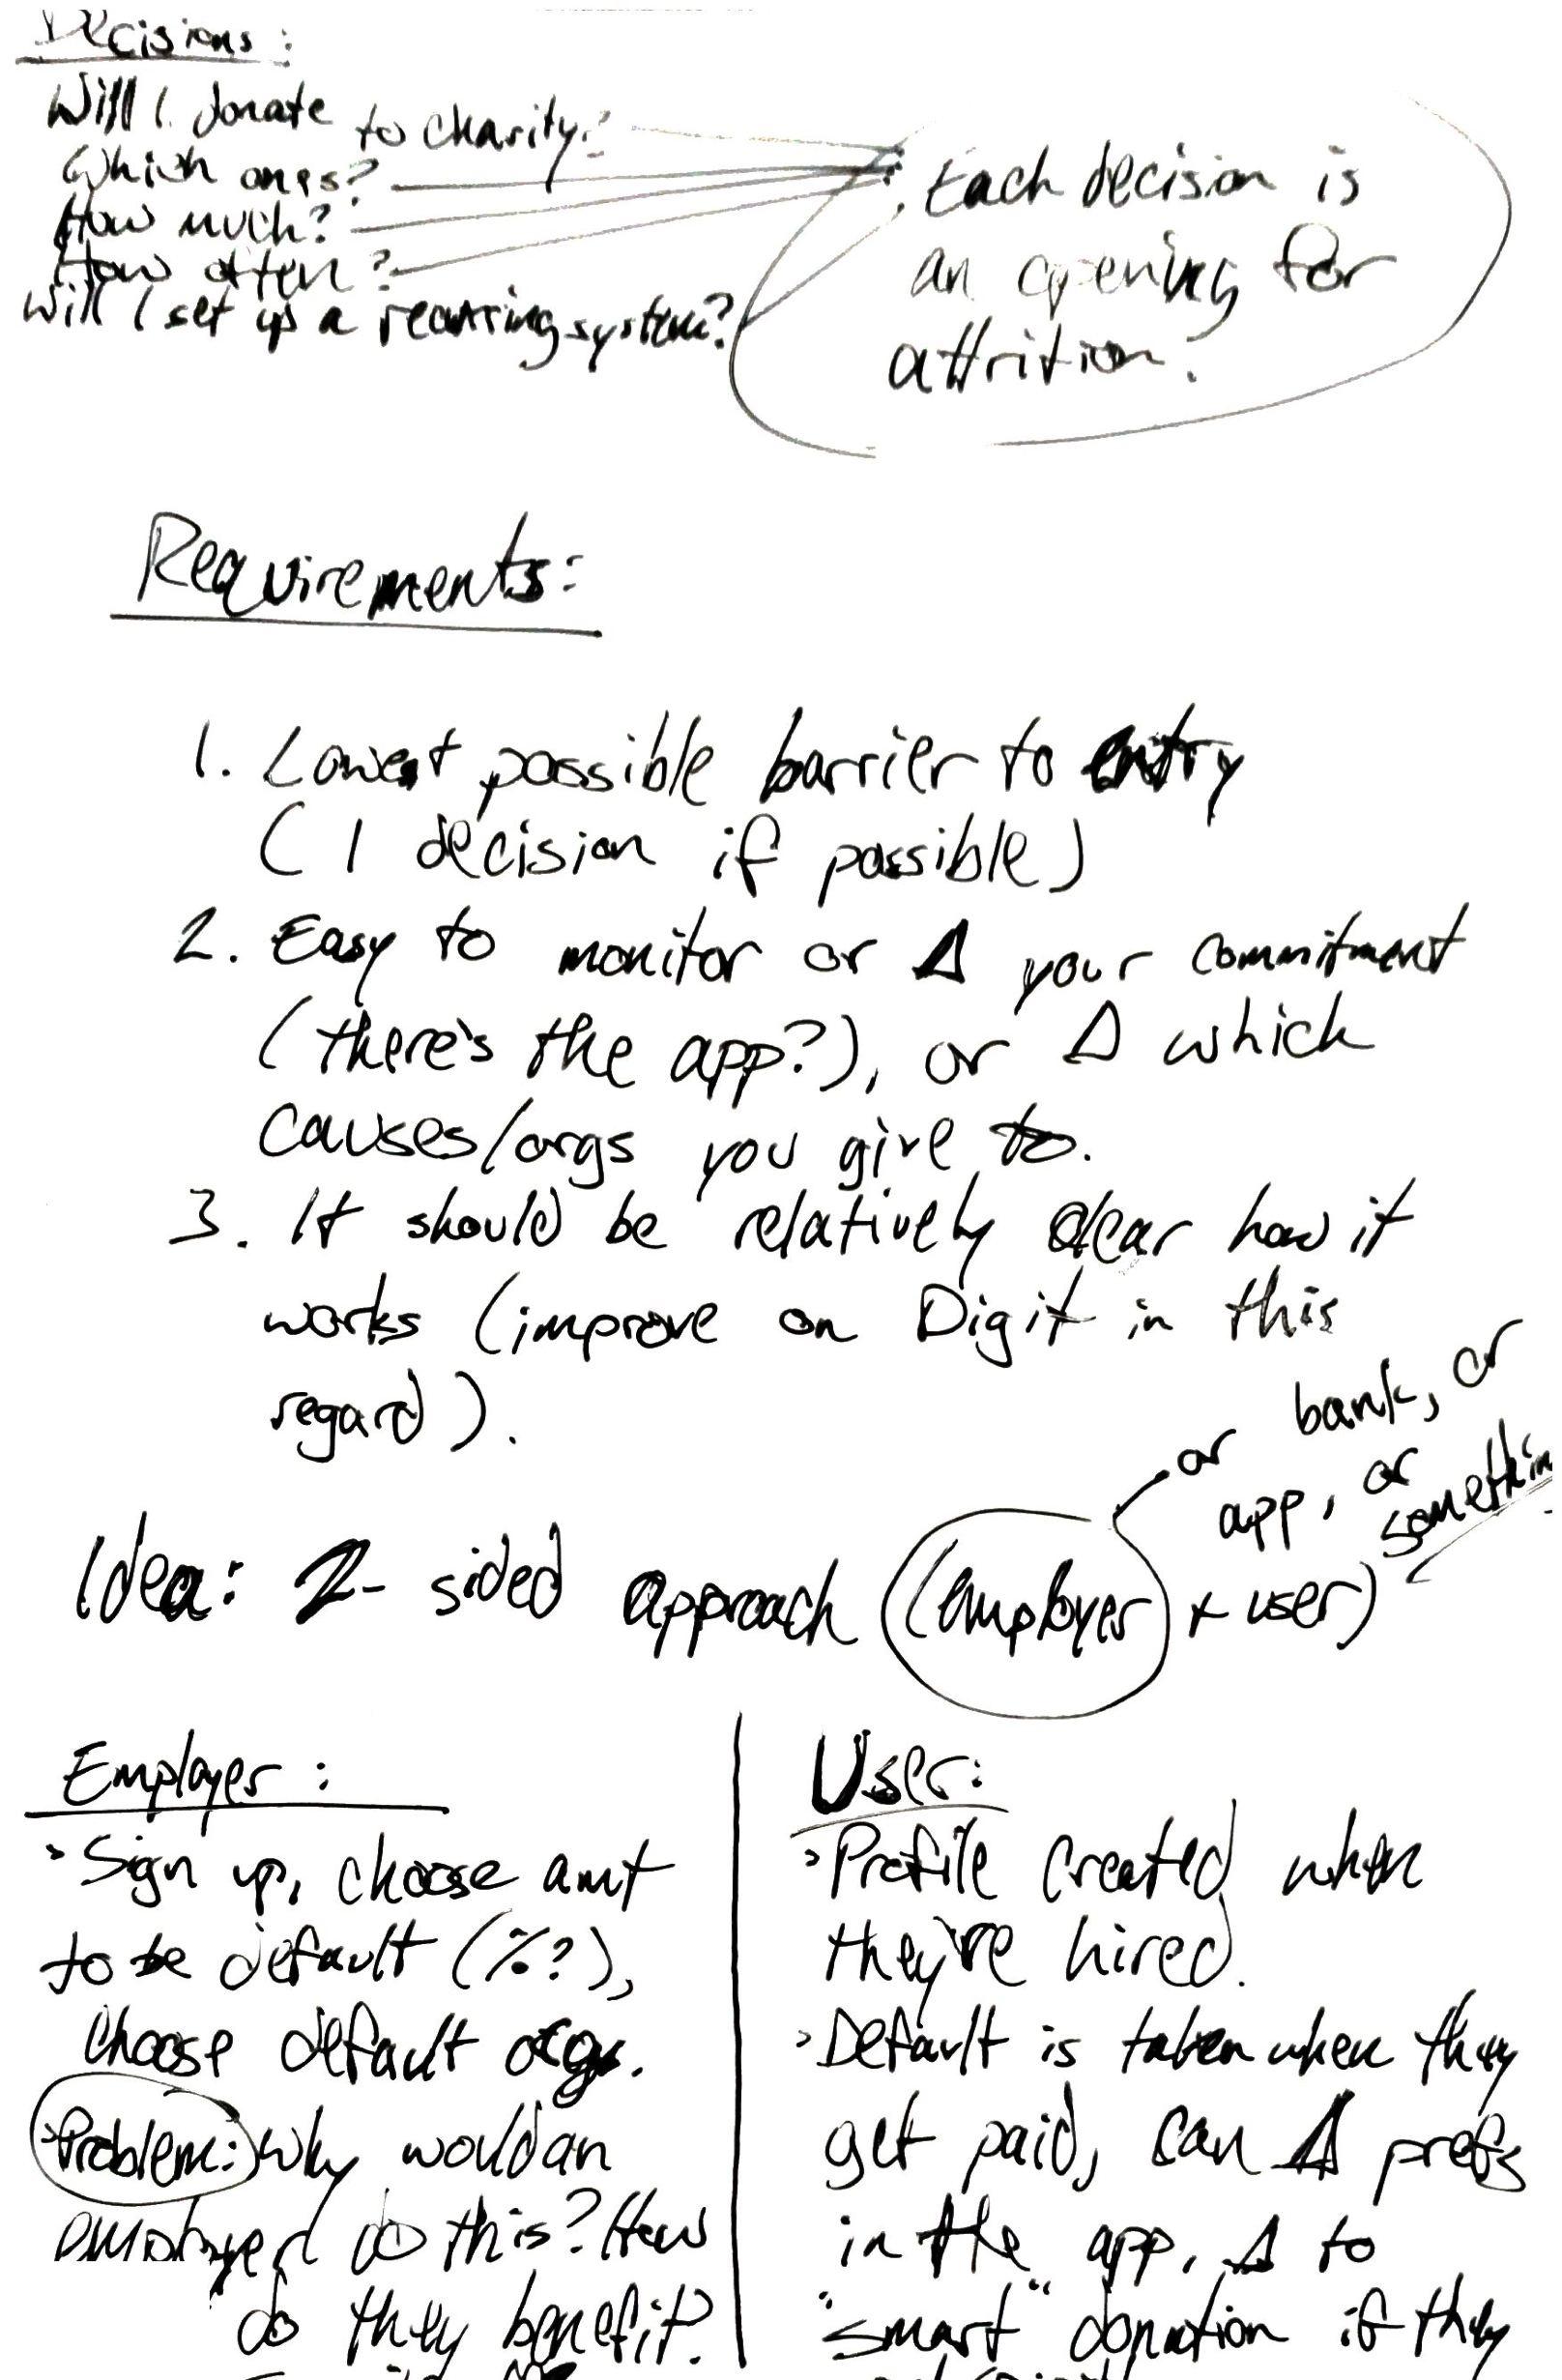 Decisions:
Will I donate to charity?
Which ones?
How much?
How often?
Will I set up a recurring system?
Each decision is
an opening for
attrition.
Requirements:
1. Lowest possible barrier to entry
(1 decision if possible)
2. Easy to monitor or Δ your commitment
(there's the app?), or Δ which
causes/orgs you give to.
3. It should be relatively clear how it
works (improve on Digit in this
regard).
or bank, or
app, or
somethin
Idea: 2-sided approach (employer + user)
Employer:
Sign up, choose amt
to be default (%?),
choose default orgs.
Problem: Why would an
employer do this? How
do they benefit?
User:
Profile created when
they're hired.
Default is taken when they
get paid, can Δ prefs
in the app, Δ to
"smart" donation if they